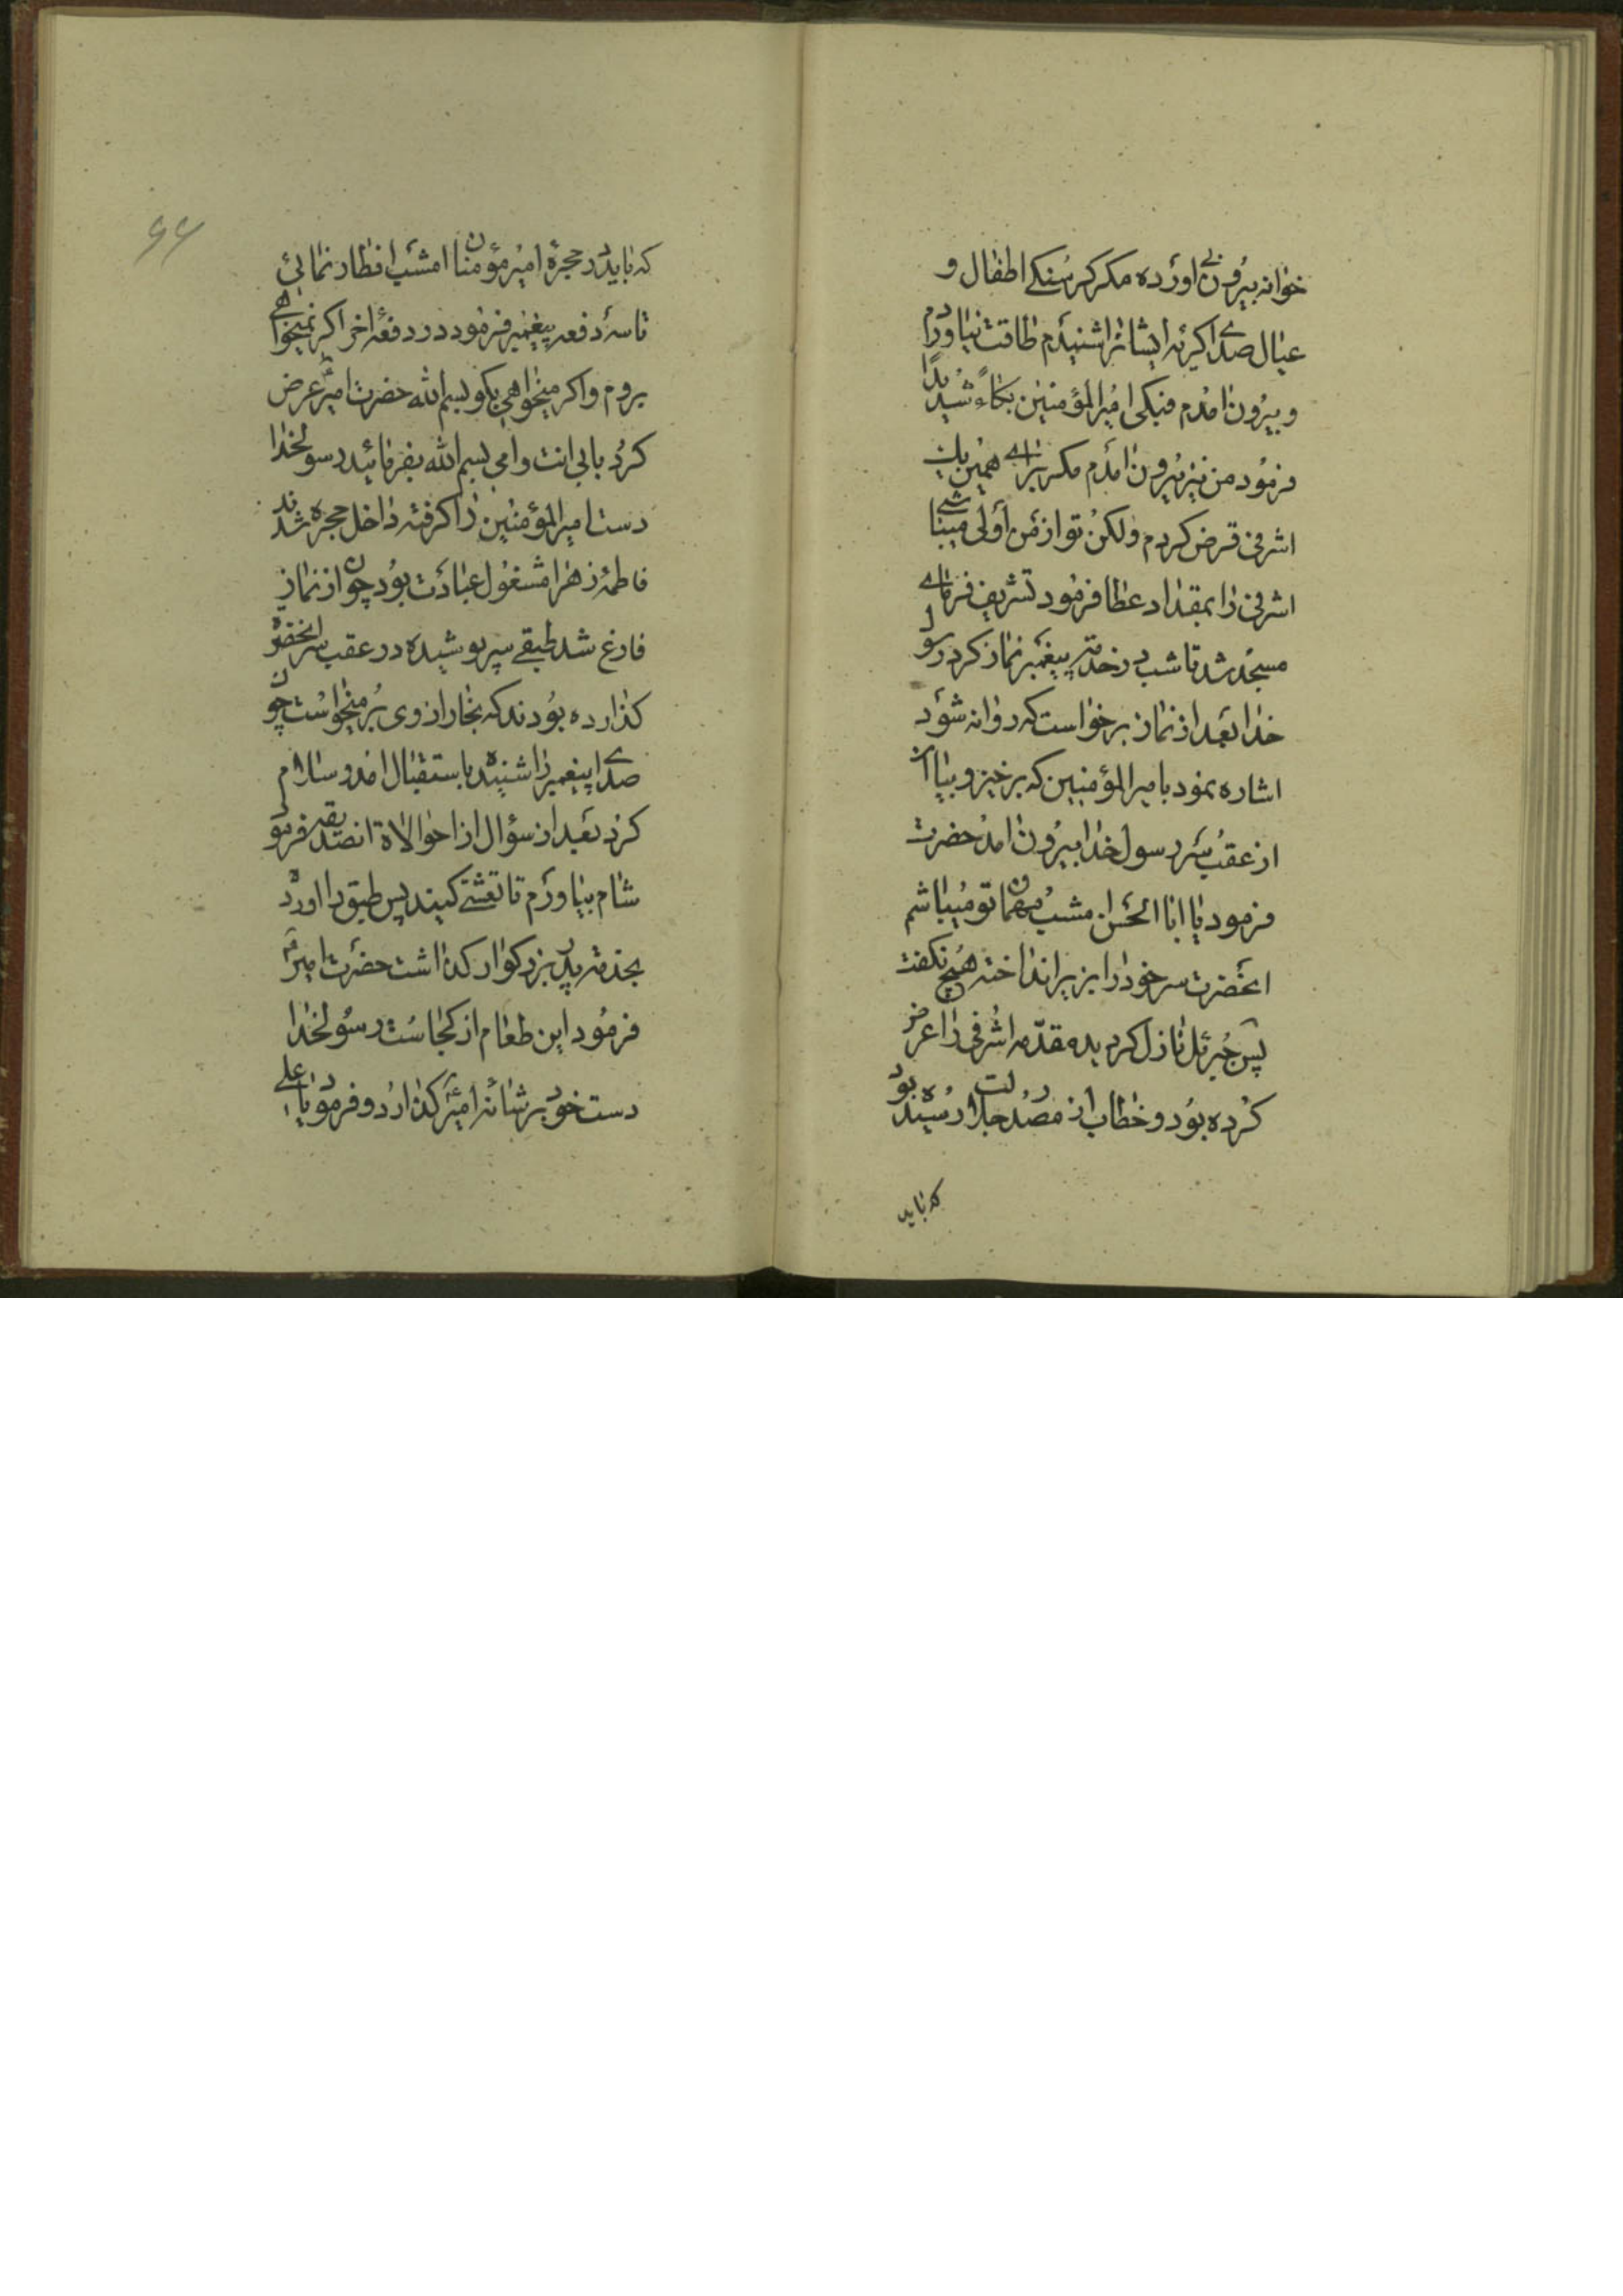 خوانه بیرون اورده مکر کرسنکی اطفال و
عیال صدای کریه ایشانرا شنیدم طاقت نیاوردم
و بیرون امدم فبکی امیرالمؤمنین بکاءً شدیداً
فرمود من نیز بیرون امدم مکر برای همین یك
اشرفی قرض کردم ولکن تو از من أولی میباشی
اشرفی را بمقداد عطا فرمود تشریف فرمای
مسجد شد تا شب در خدمة پیغمبر نماز کرد رسول
خدا بعد از نماز برخواست که روانه شود
اشاره نمود بامیرالمؤمنین که برخیز و بیا آن
از عقب سر رسول خدا بیرون امد حضرت
فرمود یا ابا الحسن امشب مهمان تو میباشم
انحضرت سر خود را بزیر انداخته هیچ نکفت
پس جبرئل نازل کردیده مقدّمه اشرفی را عرض
کرده بود و خطاب از مصدر جلالت رسیده بود
که باید
۶۶
که باید در حجرهٔ امیر مؤمنان امشب افطار نمائی
تا سه دفعه پیغمبر فرمود در دفعهٔ اخر اکر نمیخواهی
بروم و اکر میخواهی بکو بسم الله حضرت امیرؑ عرض
کرد بابی انت وامی بسم الله بفرمائید رسولخدا
دست امیرالمؤمنین را کرفته داخل حجره شدند
فاطمهٔ زهرا مشغول عبادت بود چون از نماز
فارغ شد طبقی سرپوشیده در عقب سر انحضرة
کذارده بودند که بخار از وی بر میخواست چون
صدای پیغمبر را شنیده باستقبال امد و سلام
کرد بعد از سؤال از احوالاة انصدیقه فرمود
شام بیاورم تا تعشی کنیند پس طبق را اورد
بخدمة پدر بزرکوار کذاشت حضرت امیرؑ
فرمود این طعام از کجاست رسولخدا
دست خود بر شانهٔ امیرؑ کذارد و فرمود یا علی